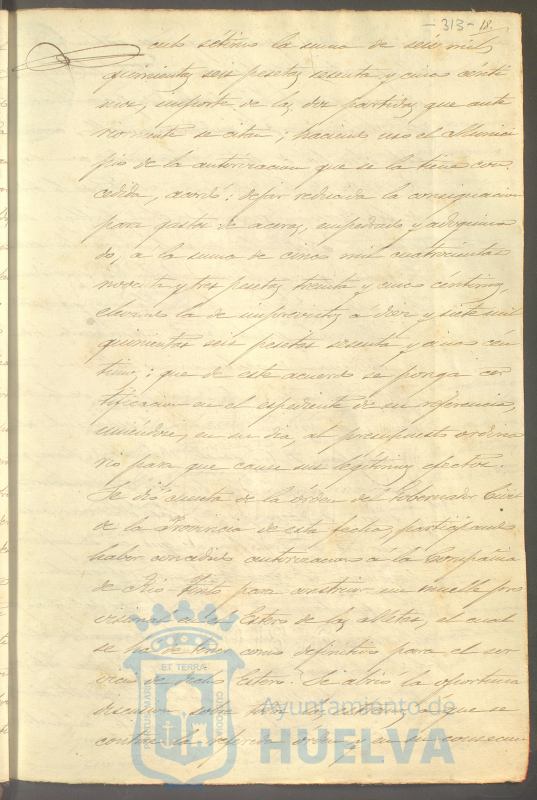 - 313 - 18.
culo sétimo la suma de seis mil
quinientas seis pesetas sesenta y cinco cénti
mos, importe de las dos partidas que ante
riormente se citan; haciendo uso el Munici
pio de la autorizacion que se la tiene con
cedida, acordó: dejar reducida la consignacion
para gastos de aceras, empedrado y adoquina
do, á la suma de cinco mil cuatrocientas
noventa y tres pesetas treinta y cinco céntimos,
elevando la de imprevistos á diez y siete mil
quinientas seis pesetas sesenta y cinco cén
timos; que de este acuerdo se ponga cer
tificacion en el espediente de su referencia,
uniéndose, en su dia, al presupuesto ordina
rio para que cause sus legítimos efectos.
Se dió cuenta de la órden del Gobernador Civil
de la Provincia de esta fecha, participando
haber concedido autorizacion á la Compañia
de Rio-Tinto para construir un muelle pro
visional en el Estero de las Metas, el cual
se ha de tener como definitivo para el ser
vicio de dicho Estero. Se abrió la oportuna
discusion sobre los á que se
contrae la referida órden, y en su consecuen
ET TERRA
PORTUS MARIS
CUSTODIA
Ayuntamiento de
HUELVA